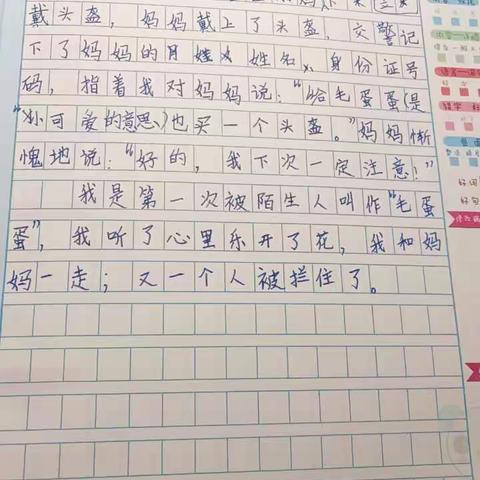 戴头盔，妈妈戴上了头盔，交警记
下了妈妈的姓名、身份证号
码，指着我对妈妈说：“给毛蛋蛋（是
“小可爱的意思）也买一个头盔。”妈妈惭
愧地说：“好的，我下次一定注意！”
我是第一次被陌生人叫作“毛蛋
蛋”，我听了心里乐开了花，我和妈
妈一走；又一个人被拦住了。